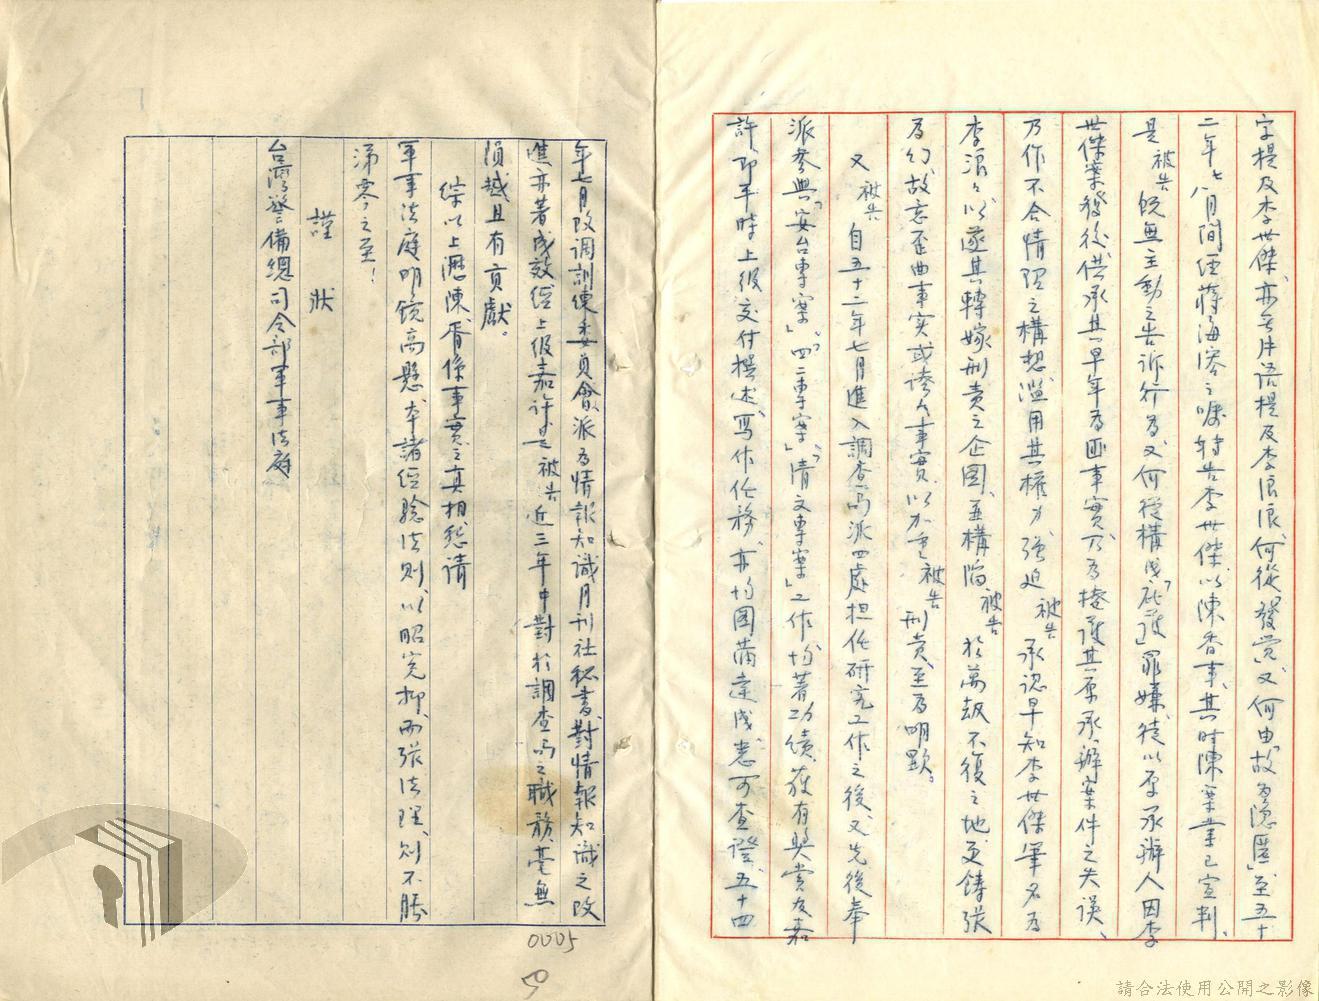 字提及李世傑、亦無片語提及李浪浪、何從「發覺」、又何由「故為隱匿」至五十
二年七八月間經蔣海溶之囑轉告李世傑、以陳香事、其時陳案業已宣判、
是被告既無主動之告訴行為、又何從構成「庇護」罪嫌、徒以原承辦人因李
世傑案發後供承其早年為匪事實、乃為掩護其原承辦案件之失誤、
乃作不合情理之構想、濫用其權力、強迫被告承認早知李世傑筆名為
李浪浪、以遂其轉嫁刑責之企圖、並構陷被告於萬劫不復之地、更鑄張
為幻、故意歪曲事实或誇大事實、以加重被告刑責、至為明顯。
又被告自五十二年七月進入調查局派四處担任研究工作之後、又先後奉
派參與「安台專案」、「四二專案」、「清文專案」工作、均著功績、獲有獎賞及嘉
許、即平時上級交付撰述、寫作任務、亦均圓滿達成、悉可查證、五十四
年七月改調訓練委員會、派為情報知識月刊社秘書、對情報知識之改
進亦著成效、經上級嘉許、是被告近三年中對於調查局之職務、毫無
隕越且有貢獻。
綜以上瀝陳、胥係事實之真相、懇請
軍事法庭明鏡高懸、本諸經驗法則、以昭冤抑、而張法理、則不勝
涕零之至！
謹狀
台灣警備總司令部軍事法庭
0005
請合法使用公開之影像